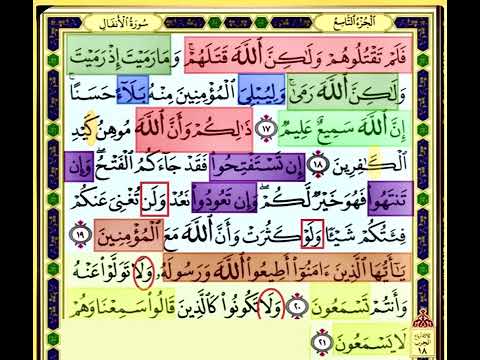 الجُزْءُ التَّاسِعُ سُورَةُ الأَنفَالِ
فَلَمْ تَقْتُلُوهُمْ وَلَٰكِنَّ ٱللَّهَ قَتَلَهُمْ ۚ وَمَا رَمَيْتَ إِذْ رَمَيْتَ
وَلَٰكِنَّ ٱللَّهَ رَمَىٰ ۚ وَلِيُبْلِيَ ٱلْمُؤْمِنِينَ مِنْهُ بَلَآءً حَسَنًا ۚ
إِنَّ ٱللَّهَ سَمِيعٌ عَلِيمٌ ١٧ ذَٰلِكُمْ وَأَنَّ ٱللَّهَ مُوهِنُ كَيْدِ
ٱلْكَٰفِرِينَ ١٨ إِن تَسْتَفْتِحُوا۟ فَقَدْ جَآءَكُمُ ٱلْفَتْحُ ۖ وَإِن
تَنتَهُوا۟ فَهُوَ خَيْرٌ لَّكُمْ ۖ وَإِن تَعُودُوا۟ نَعُدْ وَلَن تُغْنِيَ عَنكُمْ
فِئَتُكُمْ شَيْـًٔا وَلَوْ كَثُرَتْ وَأَنَّ ٱللَّهَ مَعَ ٱلْمُؤْمِنِينَ ١٩
يَٰٓأَيُّهَا ٱلَّذِينَ ءَامَنُوٓا۟ أَطِيعُوا۟ ٱللَّهَ وَرَسُولَهُۥ وَلَا تَوَلَّوْا۟ عَنْهُ
وَأَنتُمْ تَسْمَعُونَ ٢٠ وَلَا تَكُونُوا۟ كَٱلَّذِينَ قَالُوا۟ سَمِعْنَا وَهُمْ
لَا يَسْمَعُونَ ٢١
الحزب
١٨